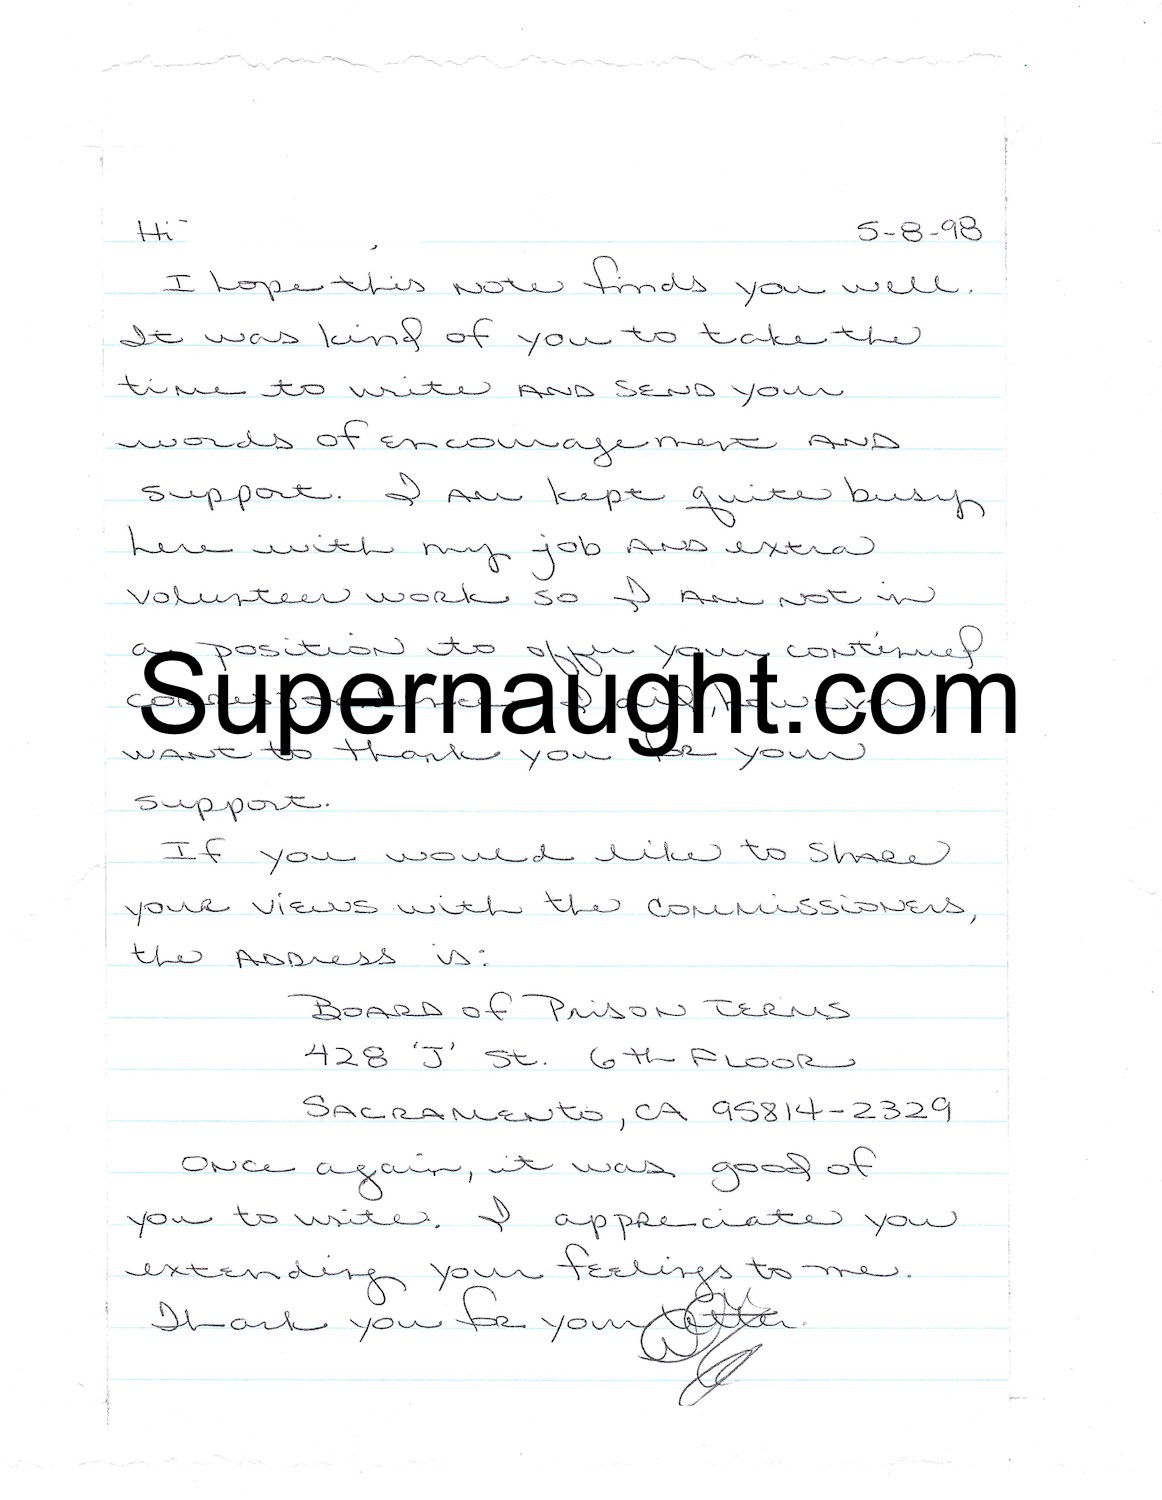 Hi- 5-8-98
I hope this note finds you well.
It was kind of you to take the
time to write AND SEND your
words of encouragement AND
support. I AM kept quite busy
here with my job AND extra
volunteer work so I AM NOT in
a position to offer you continued
Supernaught.com
correspondence. I did, however,
WANT to thank you for your
support.
If you would like to share
your views with the COMMISSIONERS,
the ADDRESS is:
BOARD of PRISON TERMS
428 'J' St. 6th FLOOR
SACRAMENTO, CA 95814-2329
Once again, it was good of
you to write. I appreciate you
extending your feelings to me.
Thank you for your letter.